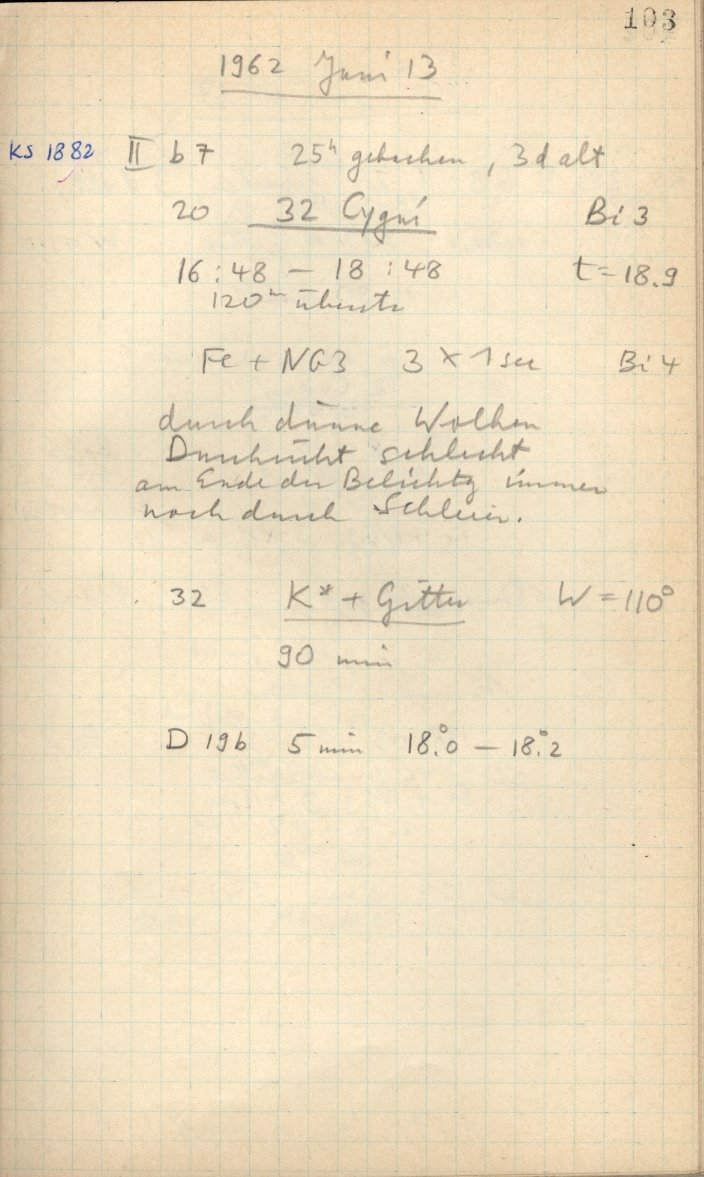 103
1962 Juni 13
KS 1882 II b 7 25h gebacken, 3d alt
20 32 Cygni Bi 3
16:48 – 18:48 t = 18.9
120m
Fe + NG3 3 × 1 sec Bi 4
durch dünne Wolken
Durchsicht schlecht
am Ende der Belichtg immer
noch durch Schleier.
32 K* + Gitter W = 110°
90 min
D 19b 5 min 18.°0 – 18.°2